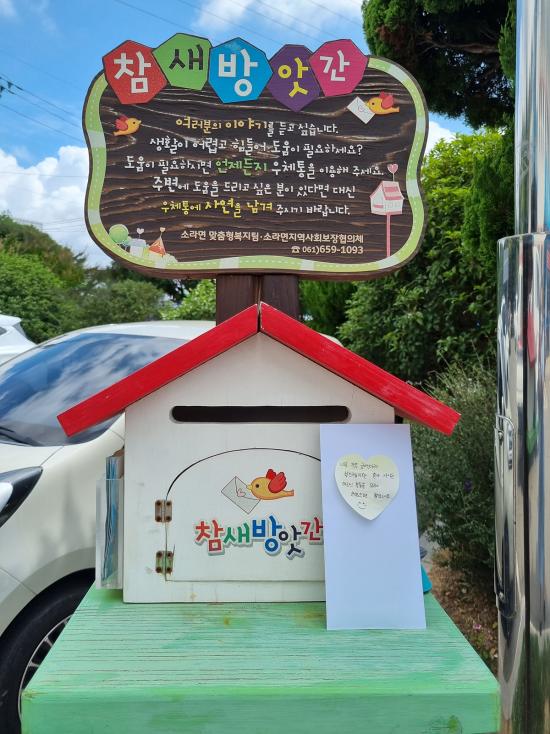 참새방앗간
여러분의 이야기를 듣고 싶습니다.
생활이 어렵고 힘들어 도움이 필요하세요?
도움이 필요하시면 언제든지 우체통을 이용해 주세요.
주변에 도움을 드리고 싶은 분이 있다면 대신
우체통에 사연을 남겨 주시기 바랍니다.
소라면 맞춤형복지팀·소라면지역사회보장협의체
☎ 061)659-1093
참새방앗간